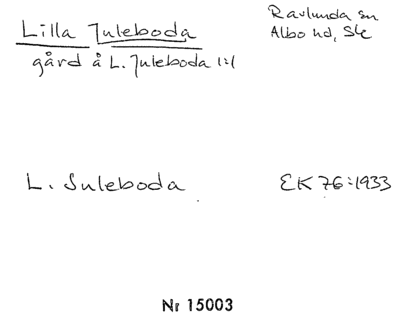 Lilla Juleboda
Ravlunda sn
Albo hd, Sk
gård å L. Juleboda 1:1
L. Juleboda
EK 76:1933
Nr 15003